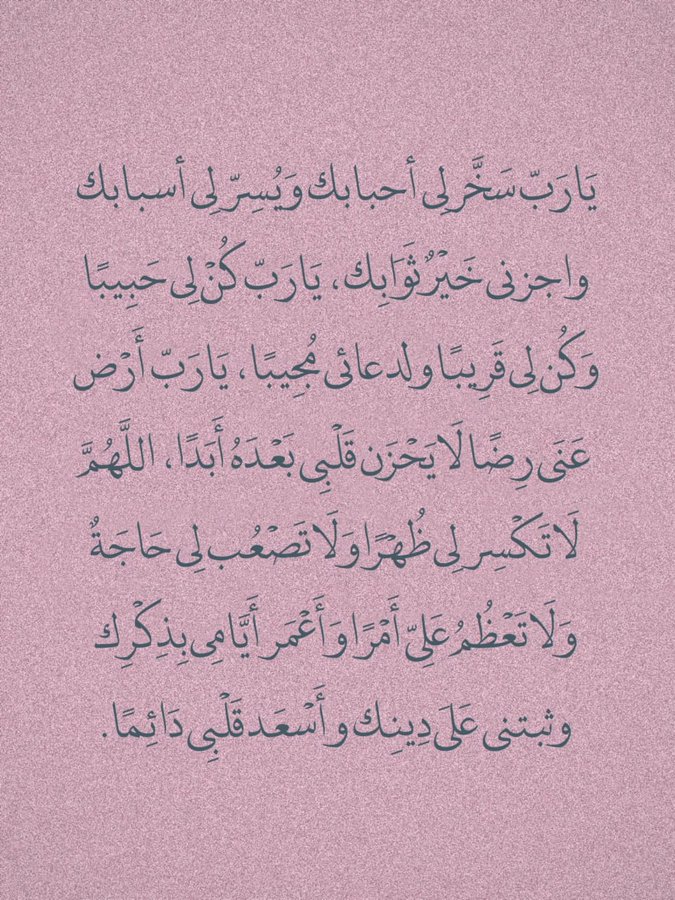 يَارَبّ سَخَّر لِى أحبابك وَيُسِرّ لِى أسبابك
واجزنى خَيْرٌ ثَوَابِك، يَارَبّ كُنْ لِى حَبِيبًا
وَكُن لِى قَرِيبًا ولدعائى مُجِيبًا، يَارَبّ أَرْض
عَنَى رِضًا لَا يَحْزَن قَلْبِى بَعْدَهُ أَبَدًا، اللَّهُمَّ
لَا تَكْسِر لِى ظُهْرًا وَلَا تَصْعُب لِى حَاجَةٌ
وَلَا تَعْظُمُ عَلِىّ أَمْرًا وَأَعْمَر أَيَّامِى بِذِكْرِك
وثبتنى عَلَى دِينِك وأَسْعَد قَلْبِى دَائِمًا.